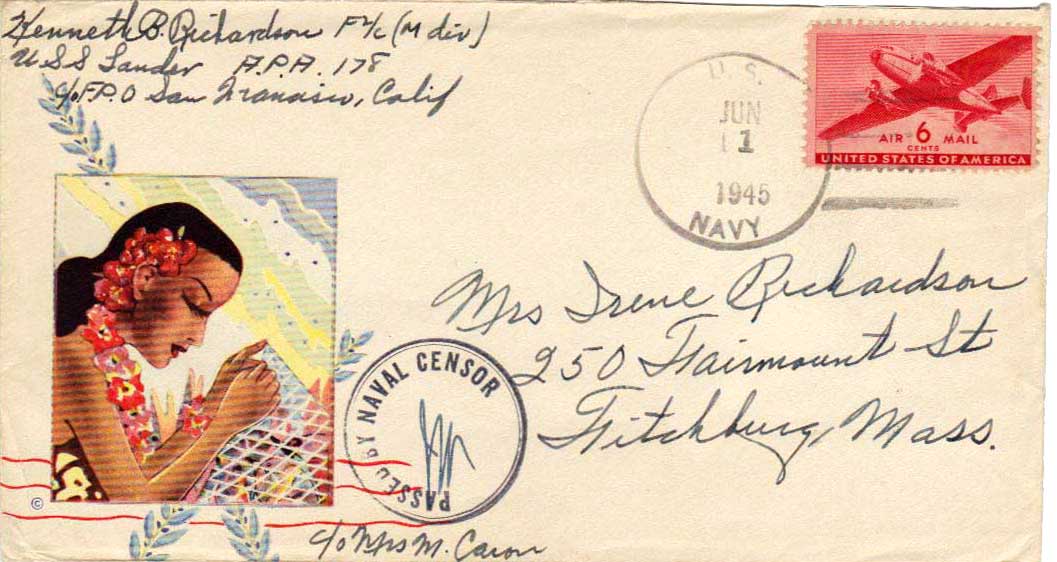 Kenneth B. Richardson F 2/c (M div)
U S S Lander A.P.A. 178
c/o F.P.O San Francisco, Calif
U.S.
JUN
1
1945
NAVY
AIR 6 MAIL
CENTS
UNITED STATES OF AMERICA
Mrs Irene Richardson
250 Fairmount St
Fitchburg, Mass.
PASSED BY NAVAL CENSOR
©
c/o Mrs M. Caron